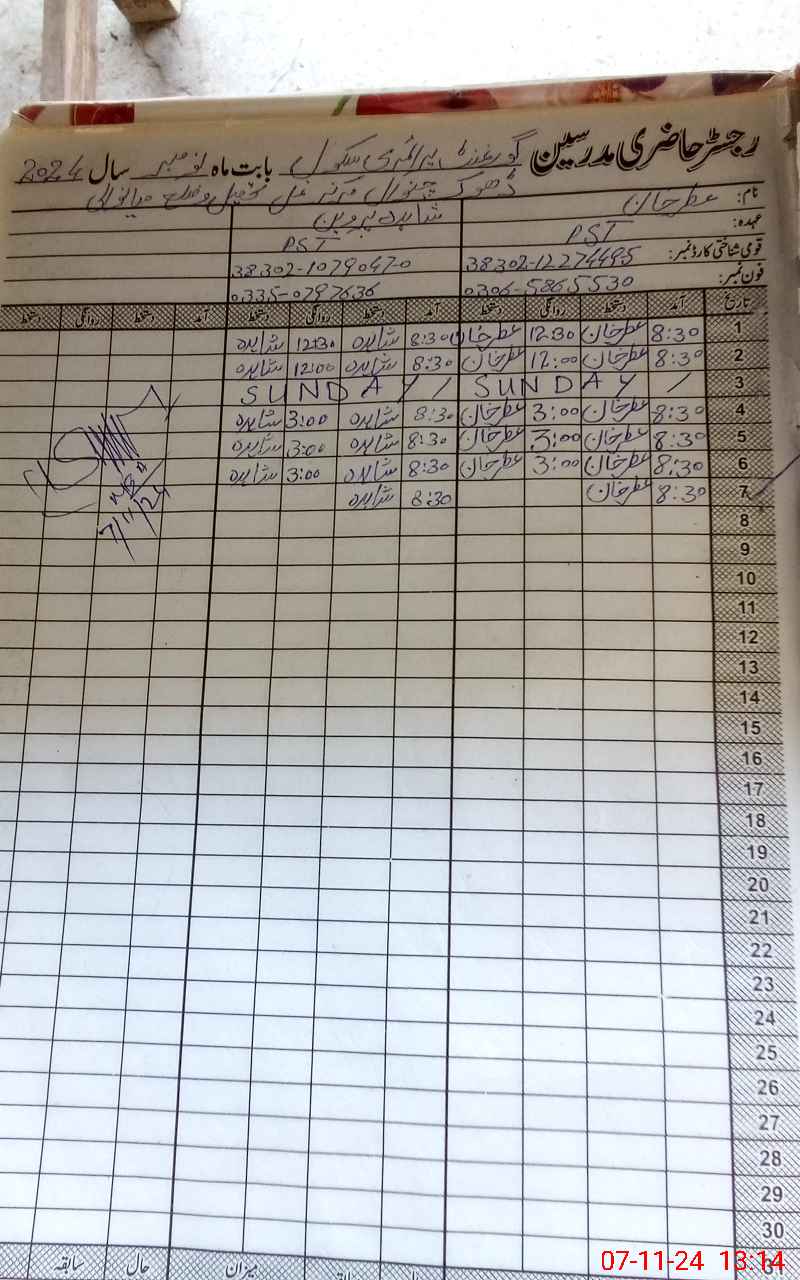 رجسٹر حاضری مدرسین گورنمنٹ پرائمری سکول بابت ماہ نومبر سال 2024
ڈھوک مرکز تحصیل و ضلع میانوالی
نام: عطر خان شاہدہ پروین
عہدہ: PST PST
قومی شناختی کارڈ نمبر: 38302-12274495 38302-10790470
فون نمبر: 0306-5865530 0335-0797636
تاریخ آمد دستخط روانگی دستخط آمد دستخط روانگی دستخط آمد دستخط روانگی دستخط
1 8:30 عطر خان 12:30 عطر خان 8:30 شاہدہ 12:30 شاہدہ
2 8:30 عطر خان 12:00 عطر خان 8:30 شاہدہ 12:00 شاہدہ
3 / SUNDAY / SUNDAY
4 8:30 عطر خان 3:00 عطر خان 8:30 شاہدہ 3:00 شاہدہ
5 8:30 عطر خان 3:00 عطر خان 8:30 شاہدہ 3:00 شاہدہ
6 8:30 عطر خان 3:00 عطر خان 8:30 شاہدہ 3:00 شاہدہ
7 8:30 عطر خان 8:30 شاہدہ
7/11/24
8
9
10
11
12
13
14
15
16
17
18
19
20
21
22
23
24
25
26
27
28
29
30
31
میزان حال سابقہ
07-11-24 13:14